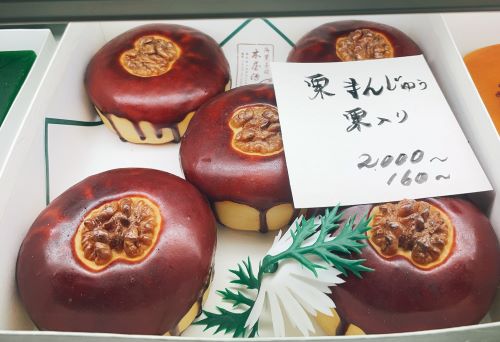 栗まんじゅう
栗入り
2.000～
160～